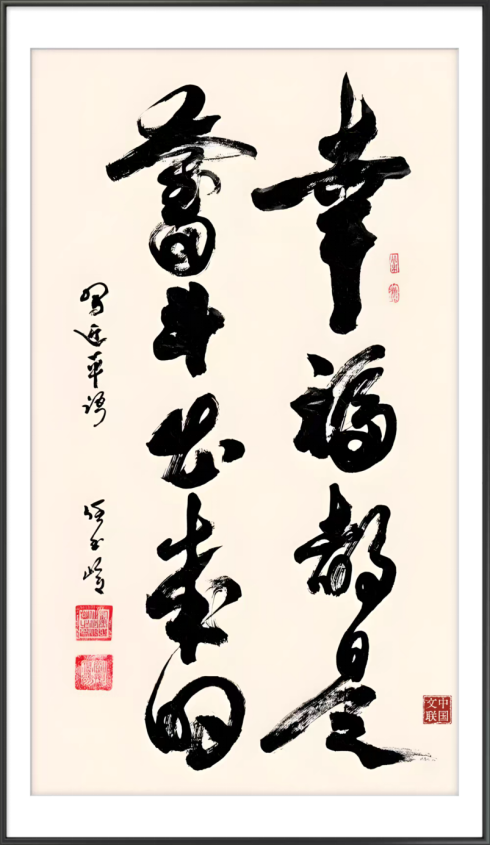 幸福都是
奋斗出来的
习近平语
中国
文联